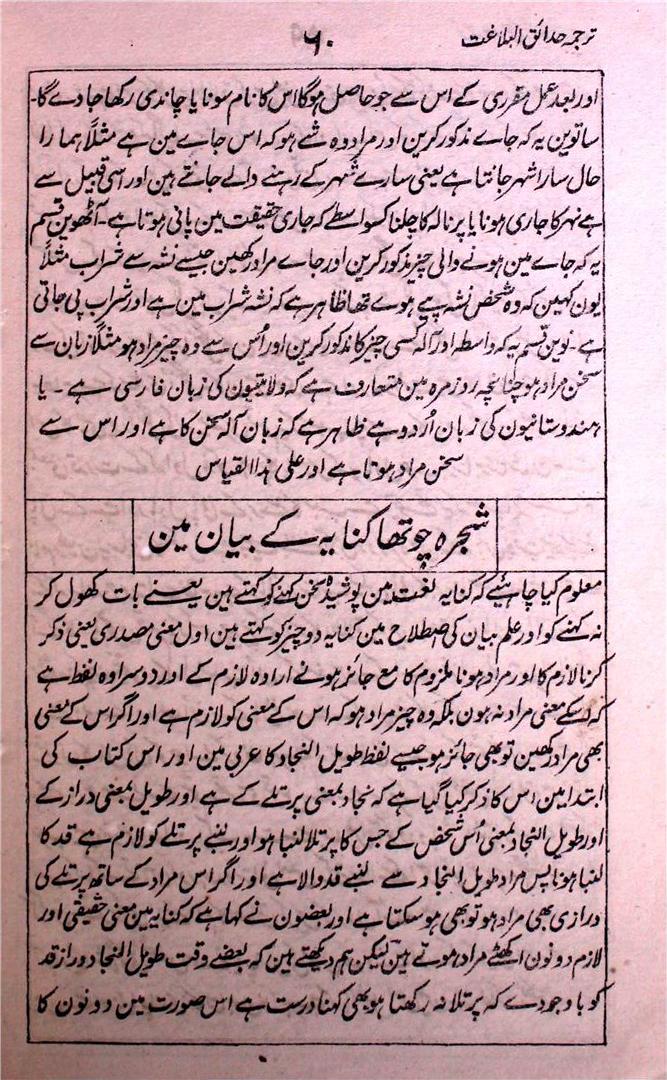 ترجمہ حدائق البلاغت
۶۰
اور بعد عمل مقرری کے اس سے جو حاصل ہوگا اس کا نام سونا یا چاندی رکھا جاوے گا۔
ساتوین یہ کہ جاے مذکور کرین اور مراد وہ شے ہو کہ اس جاے مین ہے مثلاً ہمارا
حال سارا شہر جانتا ہے یعنی سارے شہر کے رہنے والے جانتے ہین اور اسی قبیل سے
ہے نہر کا جاری ہونا یا پرنالہ کا چلنا کسواسطے کہ جاری حقیقت مین پانی ہوتا ہے۔ آٹھوین قسم
یہ کہ جاے مین ہونے والی چیز مذکور کرین اور جاے مراد رکھین جیسے نشہ سے شراب مثلاً
یون کہین کہ وہ شخص نشہ پیے ہوے تھا ظاہر ہے کہ نشہ شراب مین ہے اور شراب پی جاتی
ہے۔ نوین قسم یہ کہ واسطہ اور آلہ کسی چیز کا مذکور کرین اور اُس سے وہ چیز مراد ہو مثلاً زبان سے
سخن مراد ہو چنانچہ روزمرہ مین متعارف ہے کہ ولایتیون کی زبان فارسی ہے ۔ یا
ہندوستانیون کی زبان اُردو ہے ظاہر ہے کہ زبان آلہ سخن کا ہے اور اس سے
سخن مراد ہوتا ہے اور علی ہذا القیاس
شجرہ چوتھا کنایہ کے بیان مین
معلوم کیا چاہئیے کہ کنایہ لغت مین پوشیدہ سخن کہنے کو کہتے ہین یعنے بات کھول کر
نہ کہنے کو اور علم بیان کی اصطلاح مین کنایہ دو چیز کو کہتے ہین اول معنی مصدری یعنی ذکر
کرنا لازم کا اور مراد ہونا ملزوم کا مع جائز ہونے ارادہ لازم کے اور دوسرا وہ لفظ ہے
کہ اسکے معنی مراد نہ ہون بلکہ وہ چیز مراد ہو کہ اس کے معنی کو لازم ہے اور اگر اس کے معنی
بھی مراد رکھین تو بھی جائز ہو جیسے لفظ طویل النجاد کا عربی مین اور اس کتاب کی
ابتدا مین اس کا ذکر کیا گیا ہے کہ نجاد بمعنی پرتلے کے ہے اور طویل بمعنی دراز کے
اور طویل النجاد بمعنی اُس شخص کے جس کا پرتلا لنبا ہو اور لنبے پرتلے کو لازم ہے قد کا
لنبا ہونا پس مراد طویل النجاد سے لنبے قد والا ہے اور اگر اس مراد کے ساتھ پرتلے کی
درازی بھی مراد ہو تو بھی ہو سکتا ہے اور بعضون نے کہا ہے کہ کنایہ مین معنی حقیقی اور
لازم دونون اکٹھے مراد ہوتے ہین لیکن ہم دیکھتے ہین کہ بعضے وقت طویل النجاد دراز قد
کو باوجود ے کہ پرتلا نہ رکھتا ہو بھی کہنا درست ہے اس صورت مین دونون کا